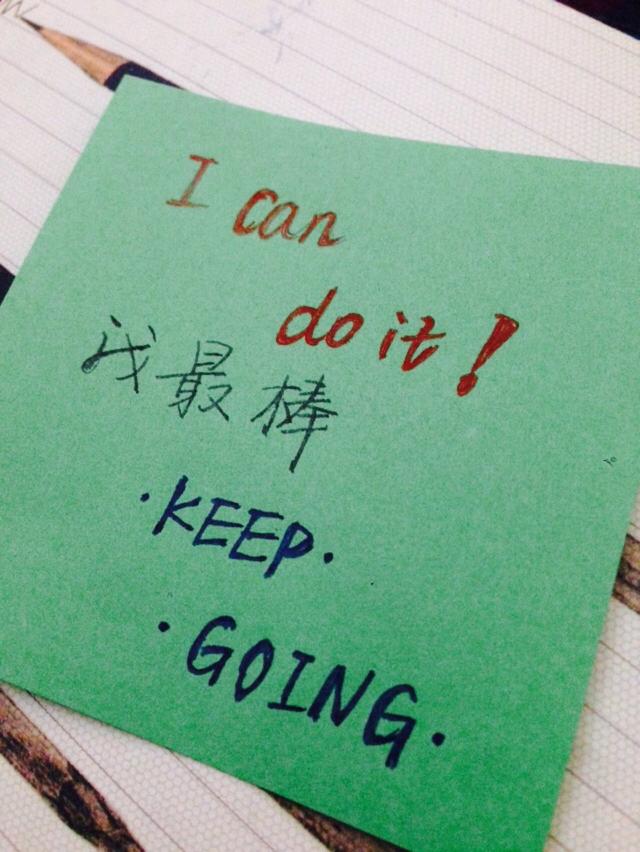 I can
do it!
我最棒
·KEEP·
·GOING·